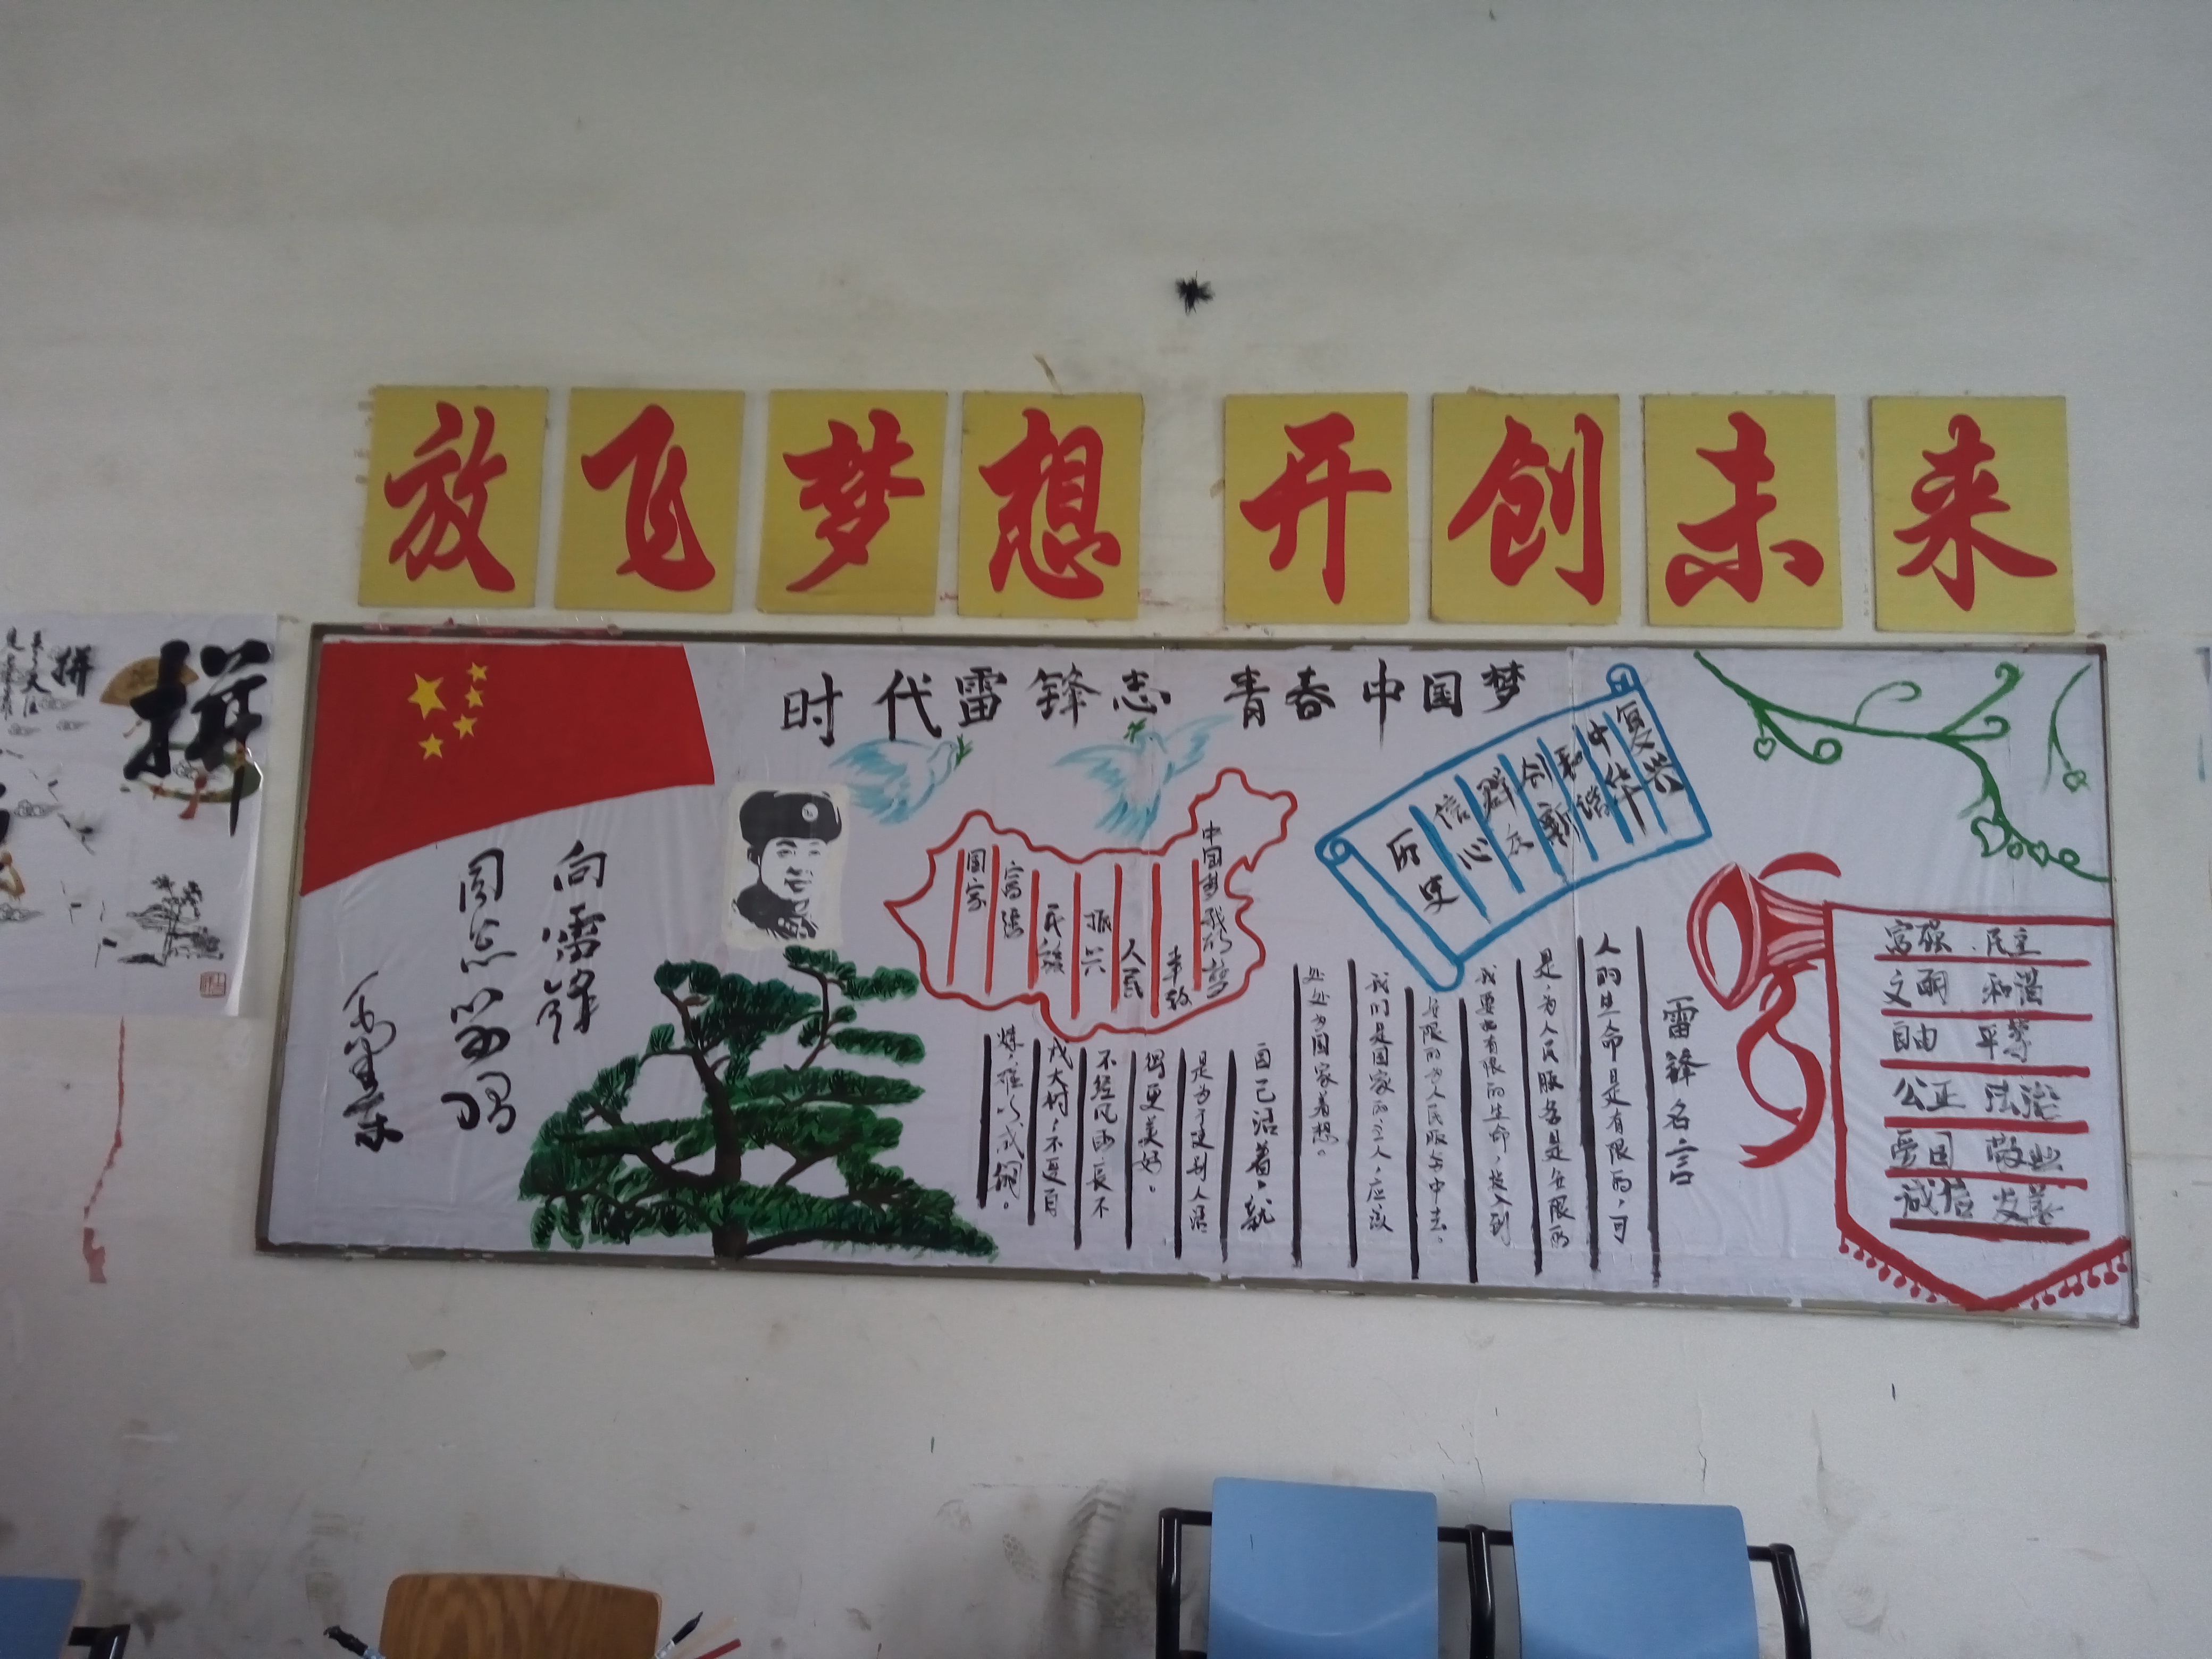 放飞梦想 开创未来
拼
拼
时代雷锋志 青春中国梦
向雷锋
同志学习
毛泽东
中国梦我的梦
幸致
人民
振兴
民族
富强
国家
复兴
中华
和谐
创新
群众
信心
历史
雷锋名言
人的生命是有限的，可
是，为人民服务是无限的
我要把有限的生命，投入到
无限的为人民服务中去。
我们是国家的主人，应该
处处为国家着想。
自己活着，就
是为了更别人活
得更美好。
不经风雨，长不
成大树，不受百
炼，难以成钢。
富强 民主
文明 和谐
自由 平等
公正 法治
爱国 敬业
诚信 友善